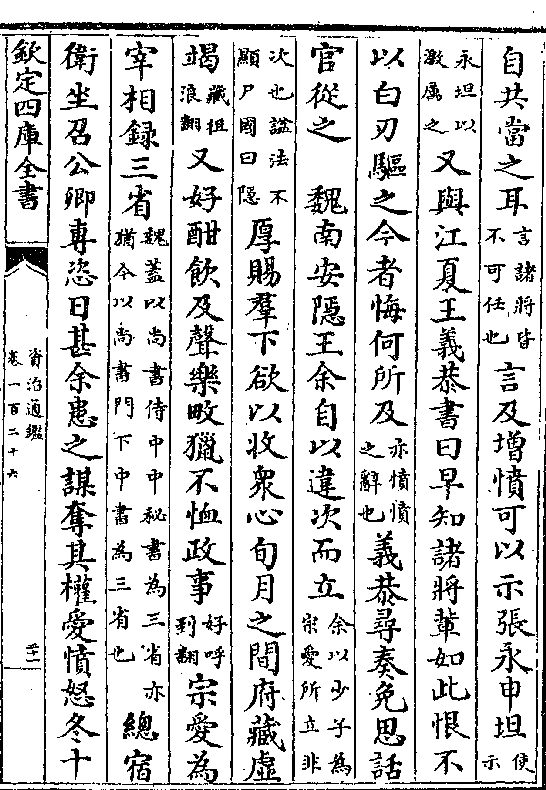 自共當之耳言諸將皆不可任也言及增憤可以示張永申坦使示
永坦以激厲之又與江夏王義恭書曰早知諸將輩如此恨不
以白刃驅之今者悔何所及亦憤憤之辭也義恭尋奏免思話
官從之 魏南安隱王余自以違次而立余以少子為宗愛所立非
次也諡法不顯尸國曰隱厚賜羣下欲以收衆心旬月之間府藏虛
竭藏徂浪翻又好酣飲及聲樂畋獵不恤政事好呼到翻宗愛為
宰相録三省魏蓋以尚書侍中中秘書為三省亦猶今以尚書門下中書為三省也總宿
衛坐召公卿專恣日甚余患之謀奪其權愛憤怒冬十
欽定四庫全書
資治通鑑
卷一百二十六